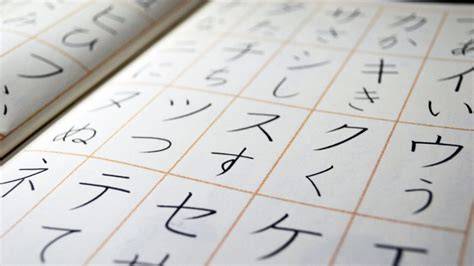 あ イ い ウ う エ
カ か キ き ク く ケ
サ さ シ し ス す セ
チ ち ツ つ テ
に ヌ ぬ ネ
ヒ ひ フ